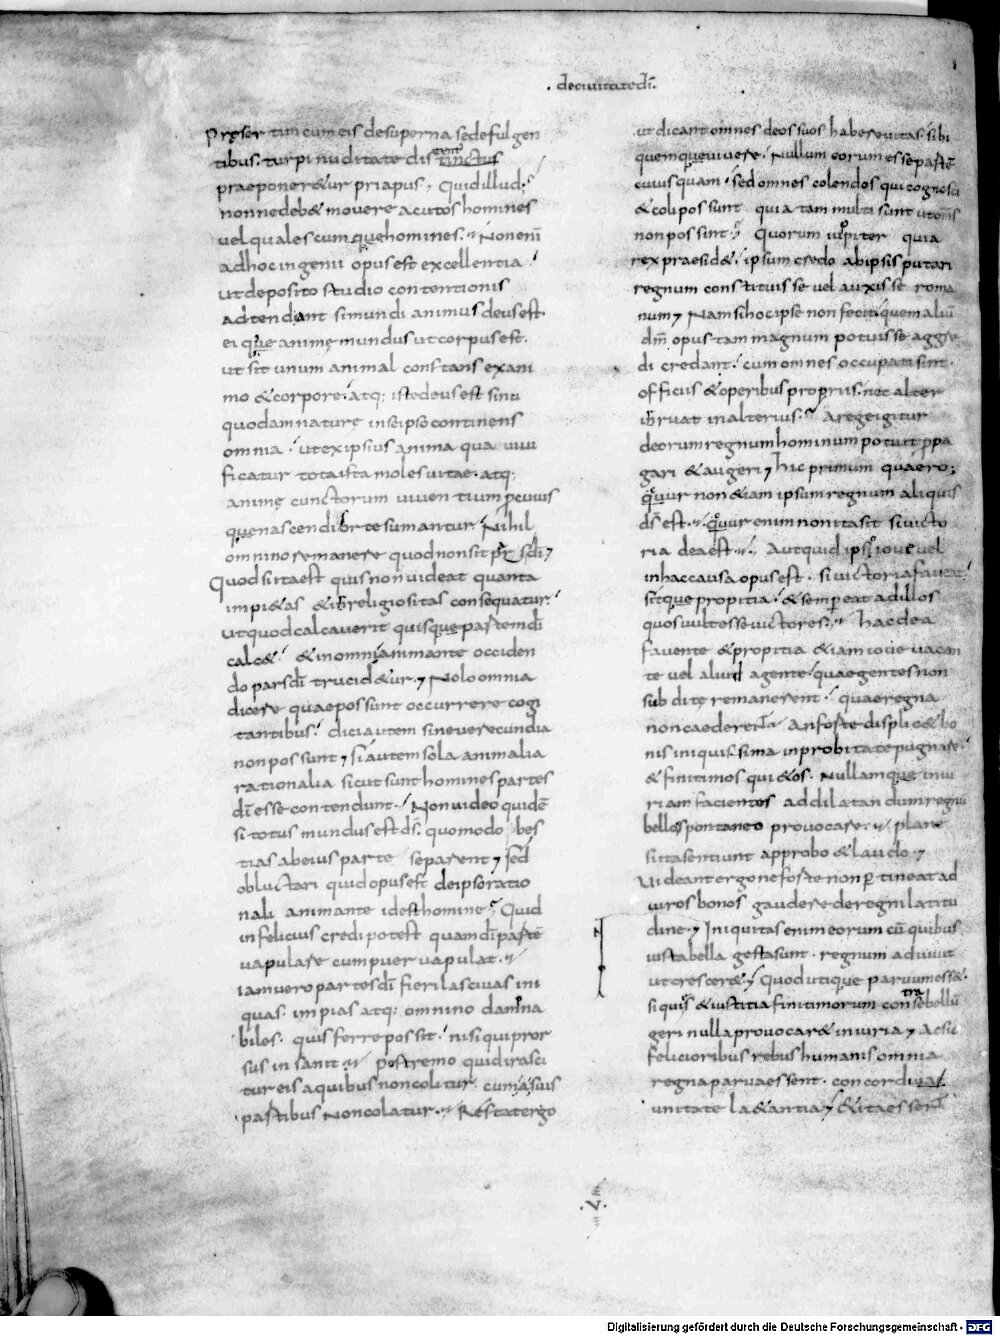 . deciuitatedī.
Pręsertim cum eis desuperna sedefulgen
tibus. turpi nuditate distinctus
praeponeret&ur priapus; Quidillud;
nonnedeb& mouere acutos homines
uel qualescumquehomines. Nonenī
adhocingenii opusest excellentia
utdeposito studio contentionis
adtendant simundi animus deusest
eique animę mundus utcorpusest.
ut sit unum animal constans exani
mo &corpore. atq; istedeusest sinu
quodamnaturę inseipsocontinens
omnia. utexipsius anima qua uiui
ficatur totaista molesuitae. atq;
animę cunctorum uiuentium pcuius
quenascendisorte sumantur Nihil
omnino remanere quodnonsit pars dī;
Quod sitaest quis non uideat quanta
impi&as &irreligiositas consequatur.
utquodcalcauerit quisque partemdī
calc&. &inomnianimante occiden
do parsdī trucid&ur; Nolo omnia
dicere quaepossunt occurrere cogi
tantibus. diciautem sineuerecundia
non possunt; siautemsola animalia
rationalia sicut sunt homines partes
dī esse contendunt. Nonuideo quidē
si totus mundus est dī. quomodo bes
tias abeius parte separent; sed
obluctari quidopusest deipsoratio
nali animante idesthomine. Quid
infelicius credipotest quamdī partē
uapulare cumpuer uapulat.
iamuero partesdī fierilasciuas ini
quas. impias atq; omnino damna
biles. quis ferre possit. nisi quipror
sus insanit. postremo quidirasci
tur eis aquibus noncolitur. cumasuis
partibus Noncolatur. Restatergo
utdicantomnes deos suos habereuitas. sibi
quemqueuiuere. Nullum eorum esse partē
cuiusquam. sedomnes colendos quicognosci
&coli possunt quia tam multi sunt utomīs
nonpossint. Quorum iuppiter quia
rexpraesid&. ipsum credo abipsis putari
regnum constituisse uel auxisse roma
num; Namsihocipse nonfecit. quemaliū
dm̄ opus tam magnum potuisse aggre
di credant. cum omnes occupatisint
officiis &operibus propriis. nec alter
irruat inalterius. Aregeigitur
deorumregnumhominum potuit ppa
gari &augeri; hic primum quaero;
qur non&iam ipsum regnum aliquis
dsest. qur enim nonitasit siuicto
ria deaest. Autquid ipso ioue uel
inhaccausa opusest. siuictoriafaueat
sitquepropitia. &semp eat adillos
quosuultesseuictores. hacdea
fauente &propitia &iam ioue uacan
te uel aliud agente. quaegentes non
subditę remanerent. quaeregna
noncaederent. Anforte displic& bo
nis iniquissima inprobitatepugnare.
&finitimos qui&os. Nullamque iniu
riam facientes addilatandumregnū
bellospontaneo prouocare. plane
siitasentiunt approbo &laudo;
Uideantergoneforte nonptineat ad
uirosbonos gaudere deregnilatitu
dine; Iniquitas enimeorum cū quibus
iustabella gestasunt. regnum adiuuit
utcresceret; Quodutique paruumess&.
siquies &iustitia finitimorum contra sebellū
geri nullaprouocar& iniuria; Acsic
felicioribus rebushumanis omnia
regnaparuaessent. concordiuai
unitate la&antia; &itaessent